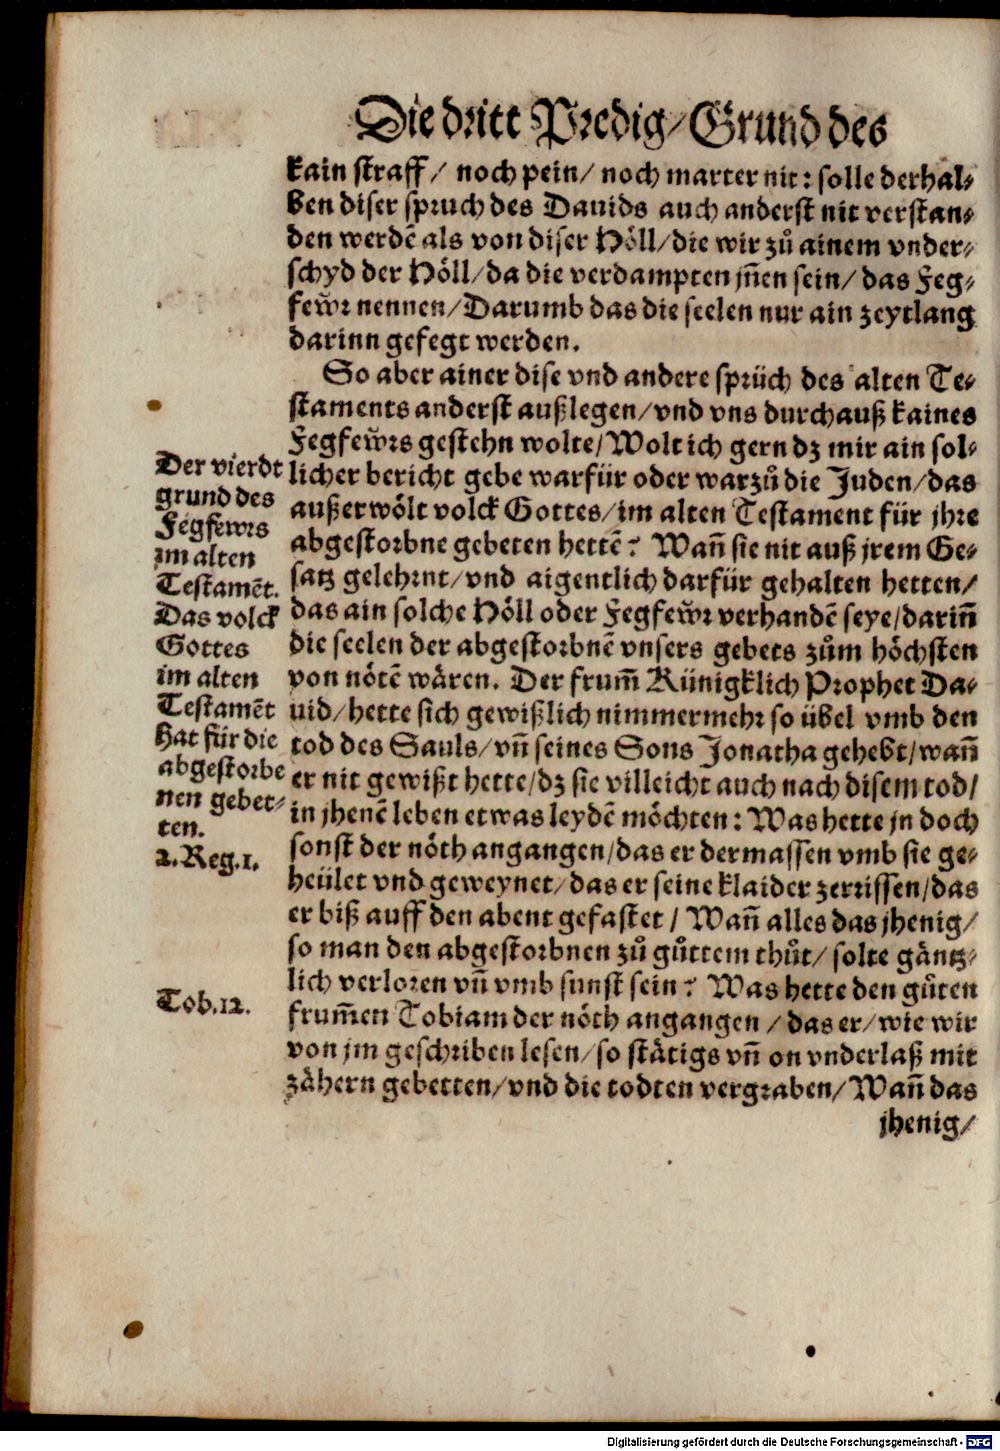 Die dritt Predig/ Grund des
kain straff/ noch pein/ noch marter nit: solle derhal-
ben diser spruch des Dauids auch anderst nit verstan-
den werdē als von diser Höll/ die wir zů ainem vnder-
schyd der Höll/ da die verdampten jn̄en sein/ das Feg-
fewr nennen/ Darumb das die seelen nur ain zeytlang
darinn gefegt werden.
So aber ainer dise vnd andere sprüch des alten Te-
staments anderst außlegen/ vnd vns durchauß kaines
Fegfewrs gestehn wolte/ Wolt ich gern dz mir ain sol-
licher bericht gebe warfür oder warzů die Juden/ das
außerwölt volck Gottes/ im alten Testament für jhre
abgestorbne gebeten hettē? Wañ sie nit auß jrem Ge-
satz gelehrnt/ vnd aigentlich darfür gehalten hetten/
das ain solche Höll oder Fegfewr verhandē seye/ dariñ
die seelen der abgestorbnē vnsers gebets zům höchsten
von nötē wären. Der frum̄ Künigklich Prophet Da-
uid/ hette sich gewißlich nimmermehr so übel vmb den
tod des Sauls/ vñ seines Sons Jonatha gehebt/ wañ
er nit gewißt hette/ dz sie villeicht auch nach disem tod/
in jhenē leben etwas leydē möchten: Was hette jn doch
sonst der nöth angangen/ das er dermassen vmb sie ge-
heület vnd geweynet/ das er seine klaider zerrissen/ das
er biß auff den abent gefastet/ Wañ alles das jhenig/
so man den abgestorbnen zů gůttem thůt/ solte gäntz-
lich verloren vñ vmb sunst sein? Was hette den gůten
frum̄en Tobiam der nöth angangen/ das er/ wie wir
von jm geschriben lesen/ so stätigs vñ on vnderlaß mit
zähern gebetten/ vnd die todten vergraben/ Wañ das
jhenig/
Der vierdt
grund des
Fegfewrs
im alten
Testamēt.
Das volck
Gottes
im alten
Testamēt
hat für die
abgestorbe
nen gebet-
ten.
2. Reg. 1.
Tob. 12.
Digitalisierung gefördert durch die Deutsche Forschungsgemeinschaft - DFG